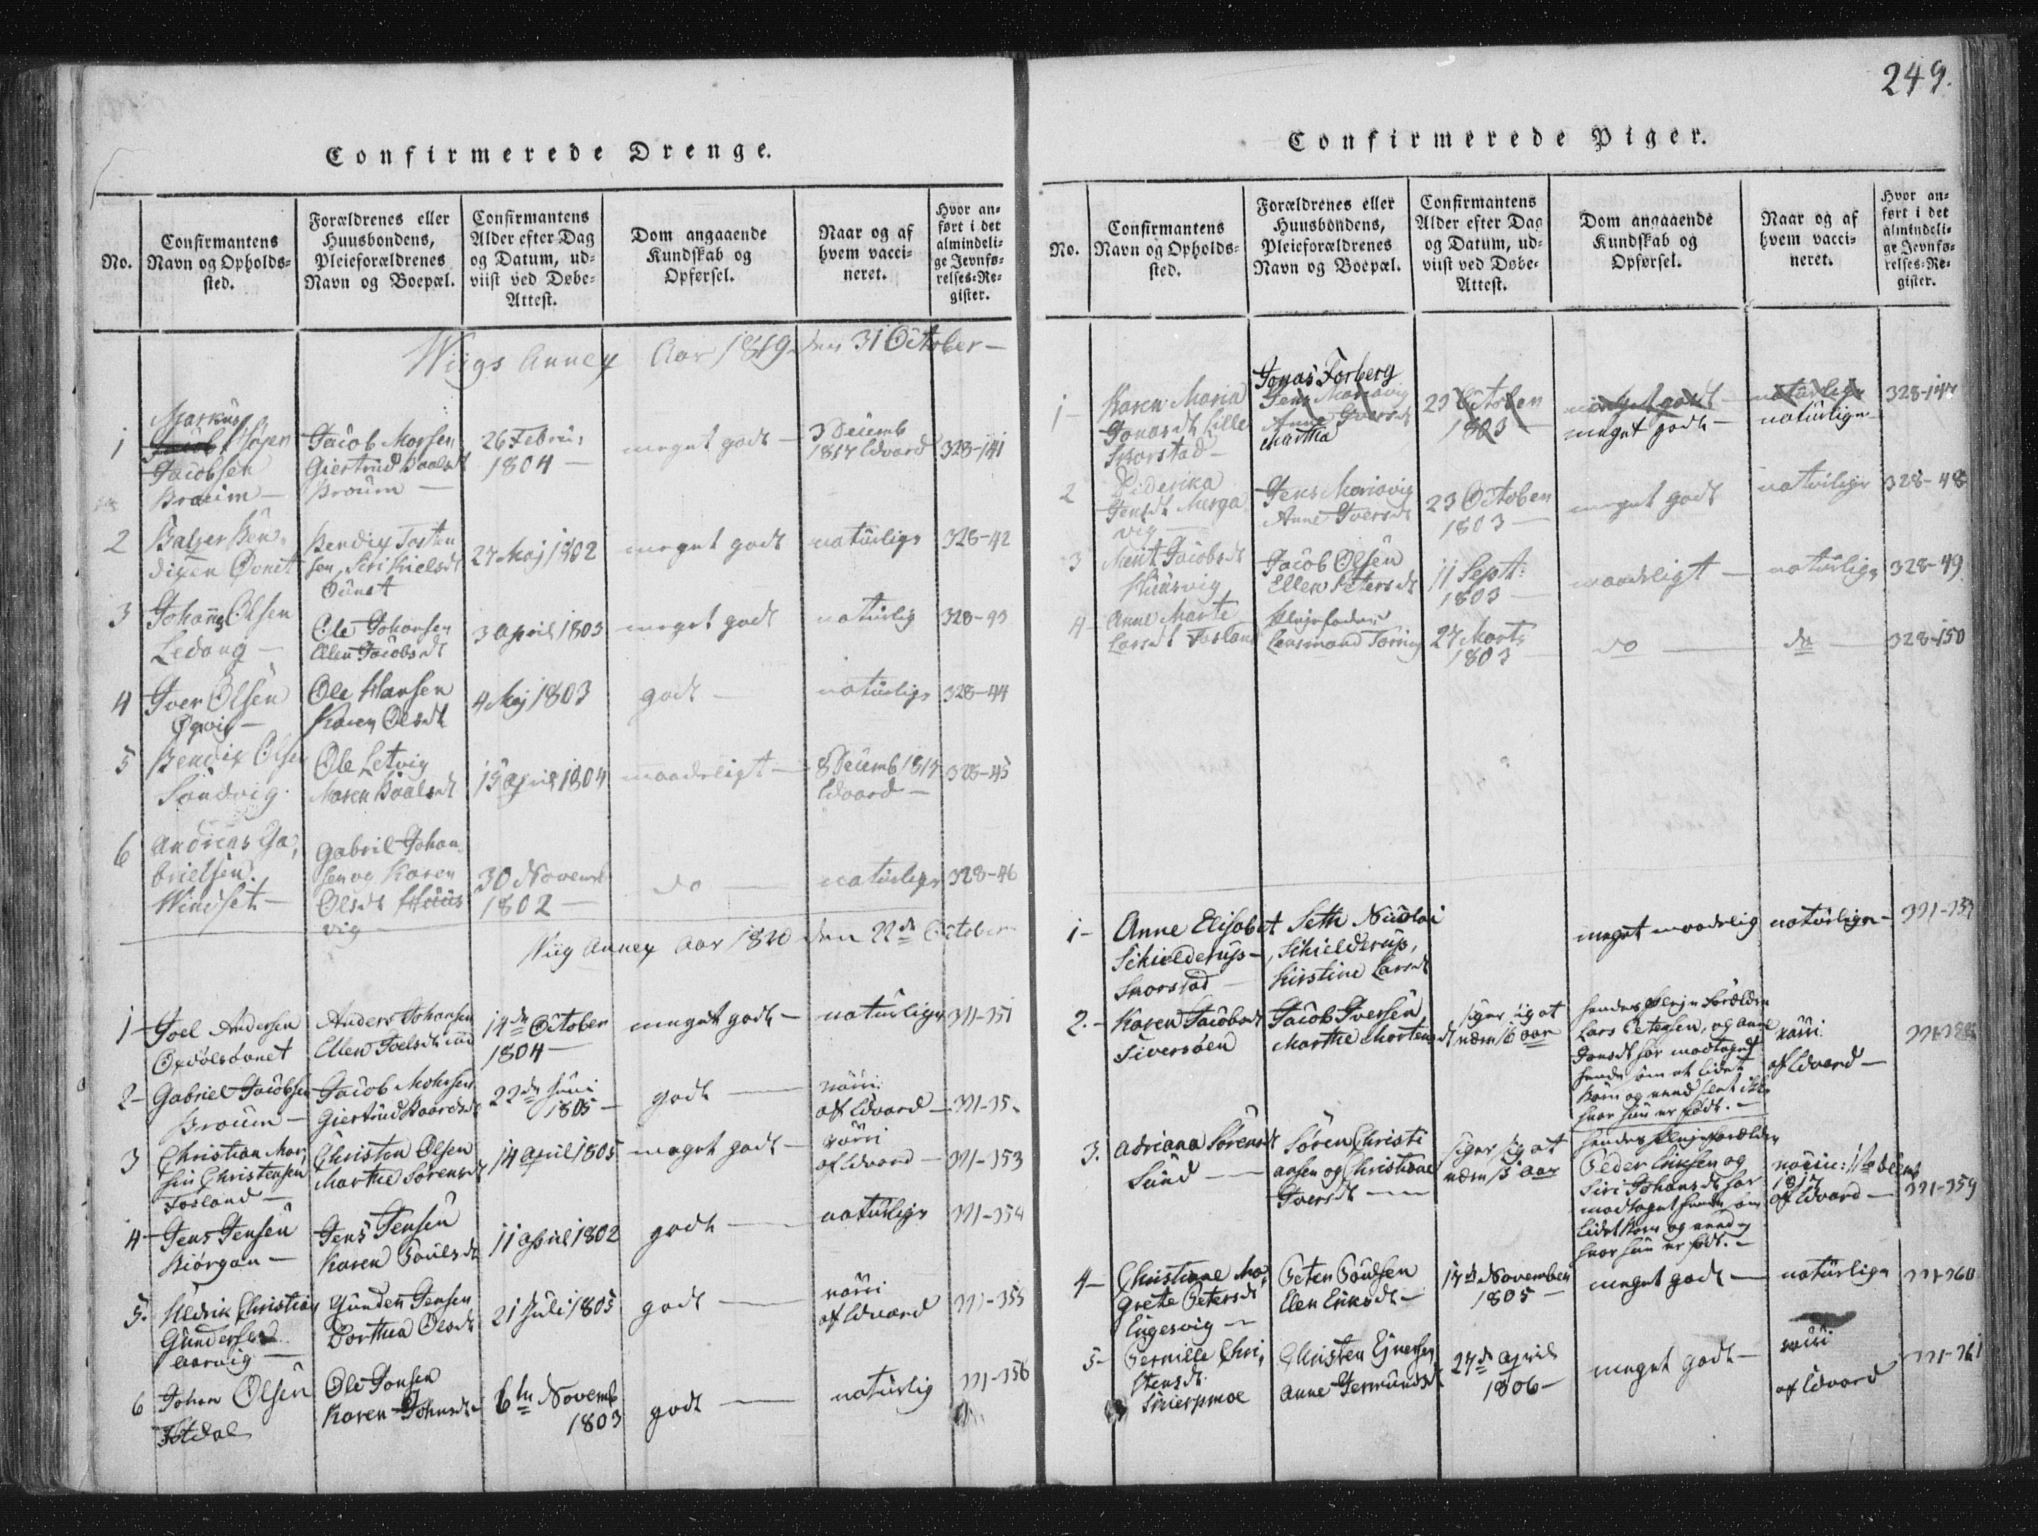 249.
Confirmerede Drenge.
No.
Confirmantens
Navn og Opholds-
sted.
Forældrenes eller
Huusbondens,
Pleieforældrenes
Navn og Boepæl.
Confirmantens
Alder efter Dag
og Datum, ud-
viist ved Døbe-
Attest.
Dom angaaende
Kundskab og
Opførsel.
Naar og af
hvem vacci-
neret.
Hvor an-
ført i det
almindeli-
ge Jevnfø-
relses-Re-
gister.
Wiigs Annex Aar 1819 den 31 October
1
Markus
Jacobsen
Braüm
Jacob Morsen
Giertrud
Broüm
26 Febru:
1804
meget godt
3 Decemb
1817 Edvard
328-141
2
Balzer Ben-
dixen
Bendix Tosten
sen, Siri Nielsdt
27 Maj 1802
meget godt
natürlige
328-42
3
Johan Olsen
Ledang
Ole Johansen
Ellen Jacobsdt
3 April 1803
meget godt
natürlig
328-43
4
Iver Olsen
Ole Hansen
Karen Olsdt
4 Maj 1803
godt
natürlige
328-44
5
Bendix Olsen
Sandvig
Ole Letvig
Maren
15 April 1804
maadeligt
8 Decemb 1817
Edvard
328-45
6
Andreas Ga-
brielsen
Windset
Gabriel Johan
sen og Karen
Olsdt
vig
30 Novemb
1802
do
natürlige
328-46
Wiig Annex Aar 1820 den 22de October
1
Joel Andersen
Anders Johansen
Ellen Joelsdt
14de October
1804
meget godt
natürlige
331-351
2
Gabriel Jacobsen
Broüm
Jacob Mohrsen
Giertrud
22de Juni
1805
godt
af Edvard
3
Christian Mar-
tin Christensen
Fosland
Christen Olsen
Marthe Sørensdt
14 April 1805
meget godt
af Edvard
331-353
4
Jens Jensen
Biørgan
Jens Jensen
Karen Poulsdt
11 April 1802
godt
natürlige
331-354
5.
Hedrik Christian
Gundersen
Aarvig
Gunder Jensen
Dorthea Olsdt
21 Juli 1805
godt
af Edvard
331-355
6
Johan Olsen
Ole Jonsen
Karen Johnsdt
6te Novemb
1803
godt
natürlig
331-356
Confirmerede Piger.
No.
Confirmantens
Navn og Opholds-
sted.
Forældrenes eller
Huusbondens,
Pleieforældrenes
Navn og Boepæl.
Confirmantens
Alder efter Dag
og Datum, ud-
viist ved Døbe-
Attest.
Dom angaaende
Kundskab og
Opførsel.
Naar og af
hvem vacci-
neret.
Hvor an-
ført i det
almindeli-
ge Jevnfø-
relses-Re-
gister.
1
Karen Maria
Jonasdt Lille
Skorstad
Jonas Forberg
Jens Mariavig
Anne Iversdt
Martha
23 October
1803
meget godt
meget godt
natürlige
natürlige
328-147
2
Diderika
Jensdt Merga
vig
Jens Mariavig
Anne Iversdt
23 October
1803
meget godt
natürlige
328-48
3
Merit Jacobsdt
Jacob Olsen
Ellen Petersdt
11 Sept:
1803
maadeligt
natürlige
328-49
4
Anne Marte
Larsdt Fosland
Plejefader
Lensmand Torring
27 Marts
1803
do
do
328-150
1
Anne Elisabet
Schielderup
Skorstad
Seth Nicolai
Schielderup,
Kirstine Larsdt
meget maadelig
natürlige
2.
Karen Jacobsdt
Siversøen
Jacob Iversen,
Marthe Mortensdt
siger sig at
være 16 aar
hendes Pleje Forældre
Lars Petersen, og Anne
Jonsdt har modtaget
hende som et lidet
Barn og veed slet ikke
hvor hun er født.
af Edvard
3.
Adriana Sørensdt
Sund
Søren Christi
ansen og Christiane
Iversdt
siger sig at
være 15 aar
hendes Plejeforældre
Peder Eriksen og
Siri Johansdt har
modtaget hende som
lidet Barn og veed ej
hvor hun er født.
1817
af Edvard
331-359
4
Christiane Ma-
grete Petersdt
Engesvig
Peter Poulsen
Elen Eriksdt
17de November
1805
meget godt
natürlige
331-360
5
Pernille Chri-
stensdt
Skierpmoe
Christen Ejnersen
Anne Jermundsdt
27de April
1806
meget godt
af Edvard
331-361